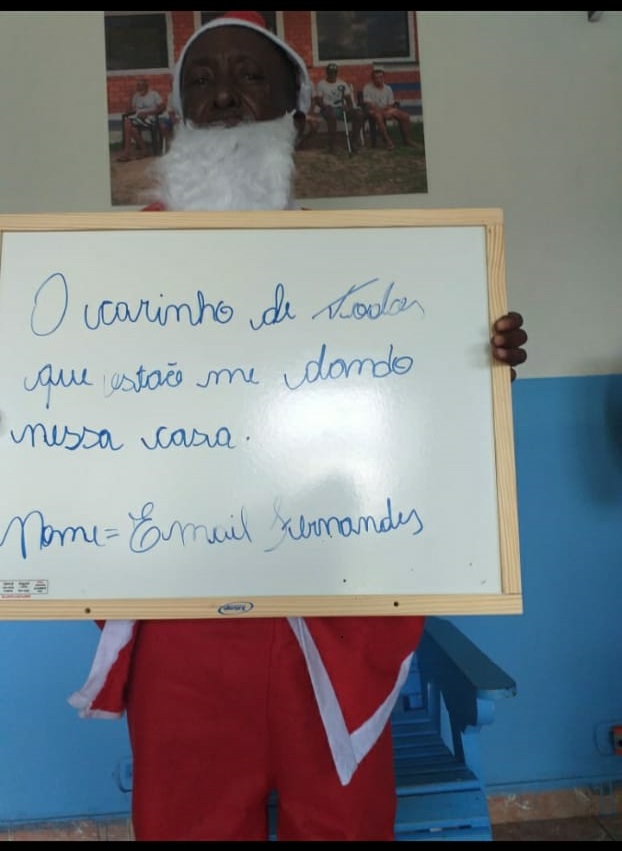 O carinho de todos
que estão me dando
nessa casa.
Nome = Email Fernandes